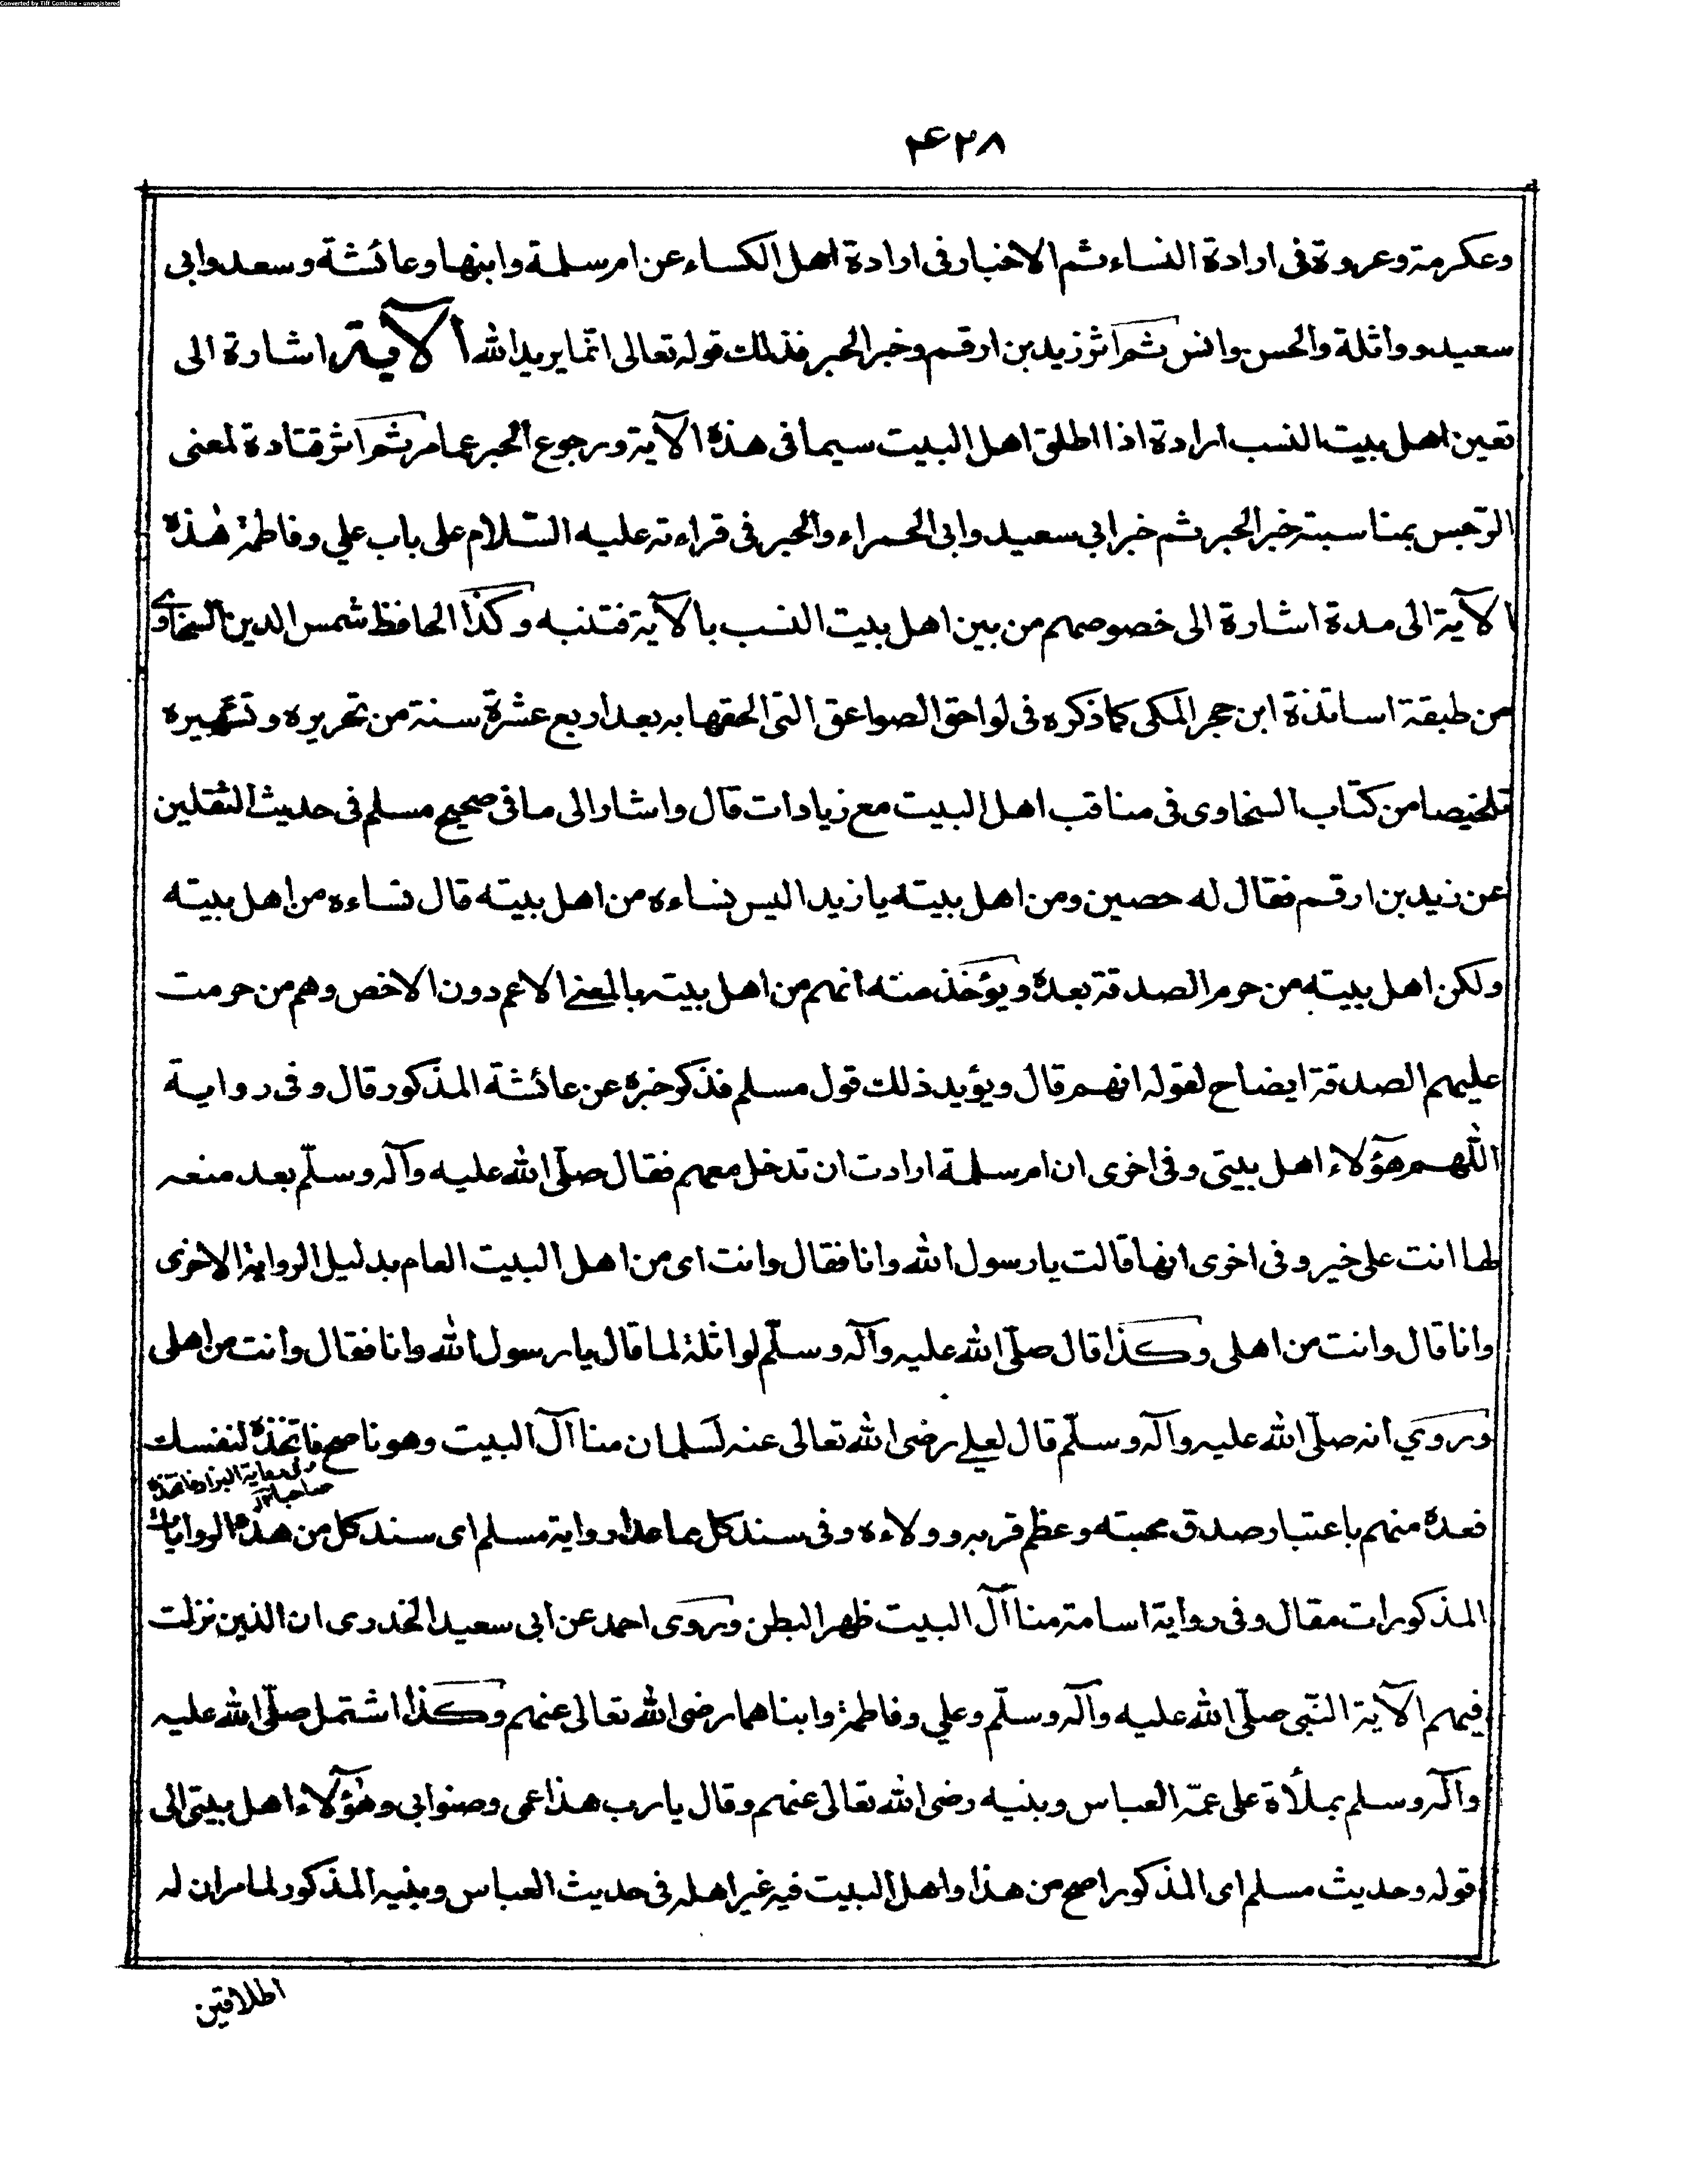 Converted by Tiff Combine - unregistered
۴۲۸
وعكرمة وعروة فى ارادة النساء ثم الاخبار فى ارادة اهل الكساء عن ام سلمة وابنها وعائشة وسعد وابى
سعيد وواثلة والحسن وانس ثم اثر زيد بن ارقم وخبر الحبر فذلك قوله تعالى انما يريد الله الآية اشارة الى
تعين اهل بيت النسب ارادة اذا اطلق اهل البيت سيما فى هذه الآية ورجوع الحبر عما مر ثم اثر قتادة لمعنى
الرّجس بمناسبة خبر الحبر ثم خبر ابي سعيد وابى الحمراء والحبر فى قراءته عليه السّلام على باب علي وفاطمة هٰذه
الآية الى مدة اشارة الى خصوصهم من بين اهل بيت النسب بالآية فتنبه وكذا الحافظ شمس الدين السخاوي
من طبقة اساتذة ابن حجر المكى كما ذكره فى لواحق الصواعق التى الحقها به بعد اربع عشرة سنة من تحريره وتشهيره
تلخيصا من كتاب السخاوى فى مناقب اهل البيت مع زيادات قال واشار الى ما فى صحيح مسلم فى حديث الثقلين
عن زيد بن ارقم فقال له حصين ومن اهل بيته يا زيد اليس نساءه من اهل بيته قال نساءه من اهل بيته
ولكن اهل بيته من حرم الصدقة بعدهٗ ويؤخذ منه انهم من اهل بيته بالمعنے الاعم دون الاخص وهم من حرمت
عليهم الصدقة ايضاح لقوله انهم قال ويؤيد ذلك قول مسلم فذكر خبره عن عائشة المذكور قال وفى رواية
اللّٰهم هؤلاء اهل بيتى وفى اخرى ان ام سلمة ارادت ان تدخل معهم فقال صلّى الله عليه وآله وسلّم بعد منعه
لها انت على خير وفى اخرى انها قالت يا رسول الله وانا فقال وانت اى من اهل البيت العام بدليل الرواية الاخرى
وانا قال وانت من اهلى وكذا قال صلّى الله عليه وآله وسلّم لواثلة لما قال يا رسول الله وانا فقال وانت من اهلى
وروي انه صلّى الله عليه وآله وسلّم قال لعلے رضى الله تعالى عنه لسلمان منا آل البيت وهو ناصح فاتخذه لنفسك
وفى رواية البزار فاتخذه
صاحبا
فعدهٗ منهم باعتبار صدق محبته وعظم قربه وولاءه وفى سند كل ما عدا رواية مسلم اى سند كل من هذه الروايات
المذكورات مقال وفى رواية اسامة منا آل البيت ظهر البطن وروى احمد عن ابى سعيد الخدرى ان الذين نزلت
فيهم الآية النّبى صلّى الله عليه وآله وسلّم وعلي وفاطمة وابناهما رضى الله تعالى عنهم وكذا اشتمل صلّى الله عليه
وآله وسلم بملأة على عمّه العباس وبنيه رضى الله تعالى عنهم وقال يا رب هذا عمى وصنو ابى وهٰؤلاء اهل بيتى الى
قوله وحديث مسلم اى المذكور اصح من هذا واهل البيت فيه غير اهله فى حديث العباس وبنيه المذكور لما مر ان له
اطلاقين